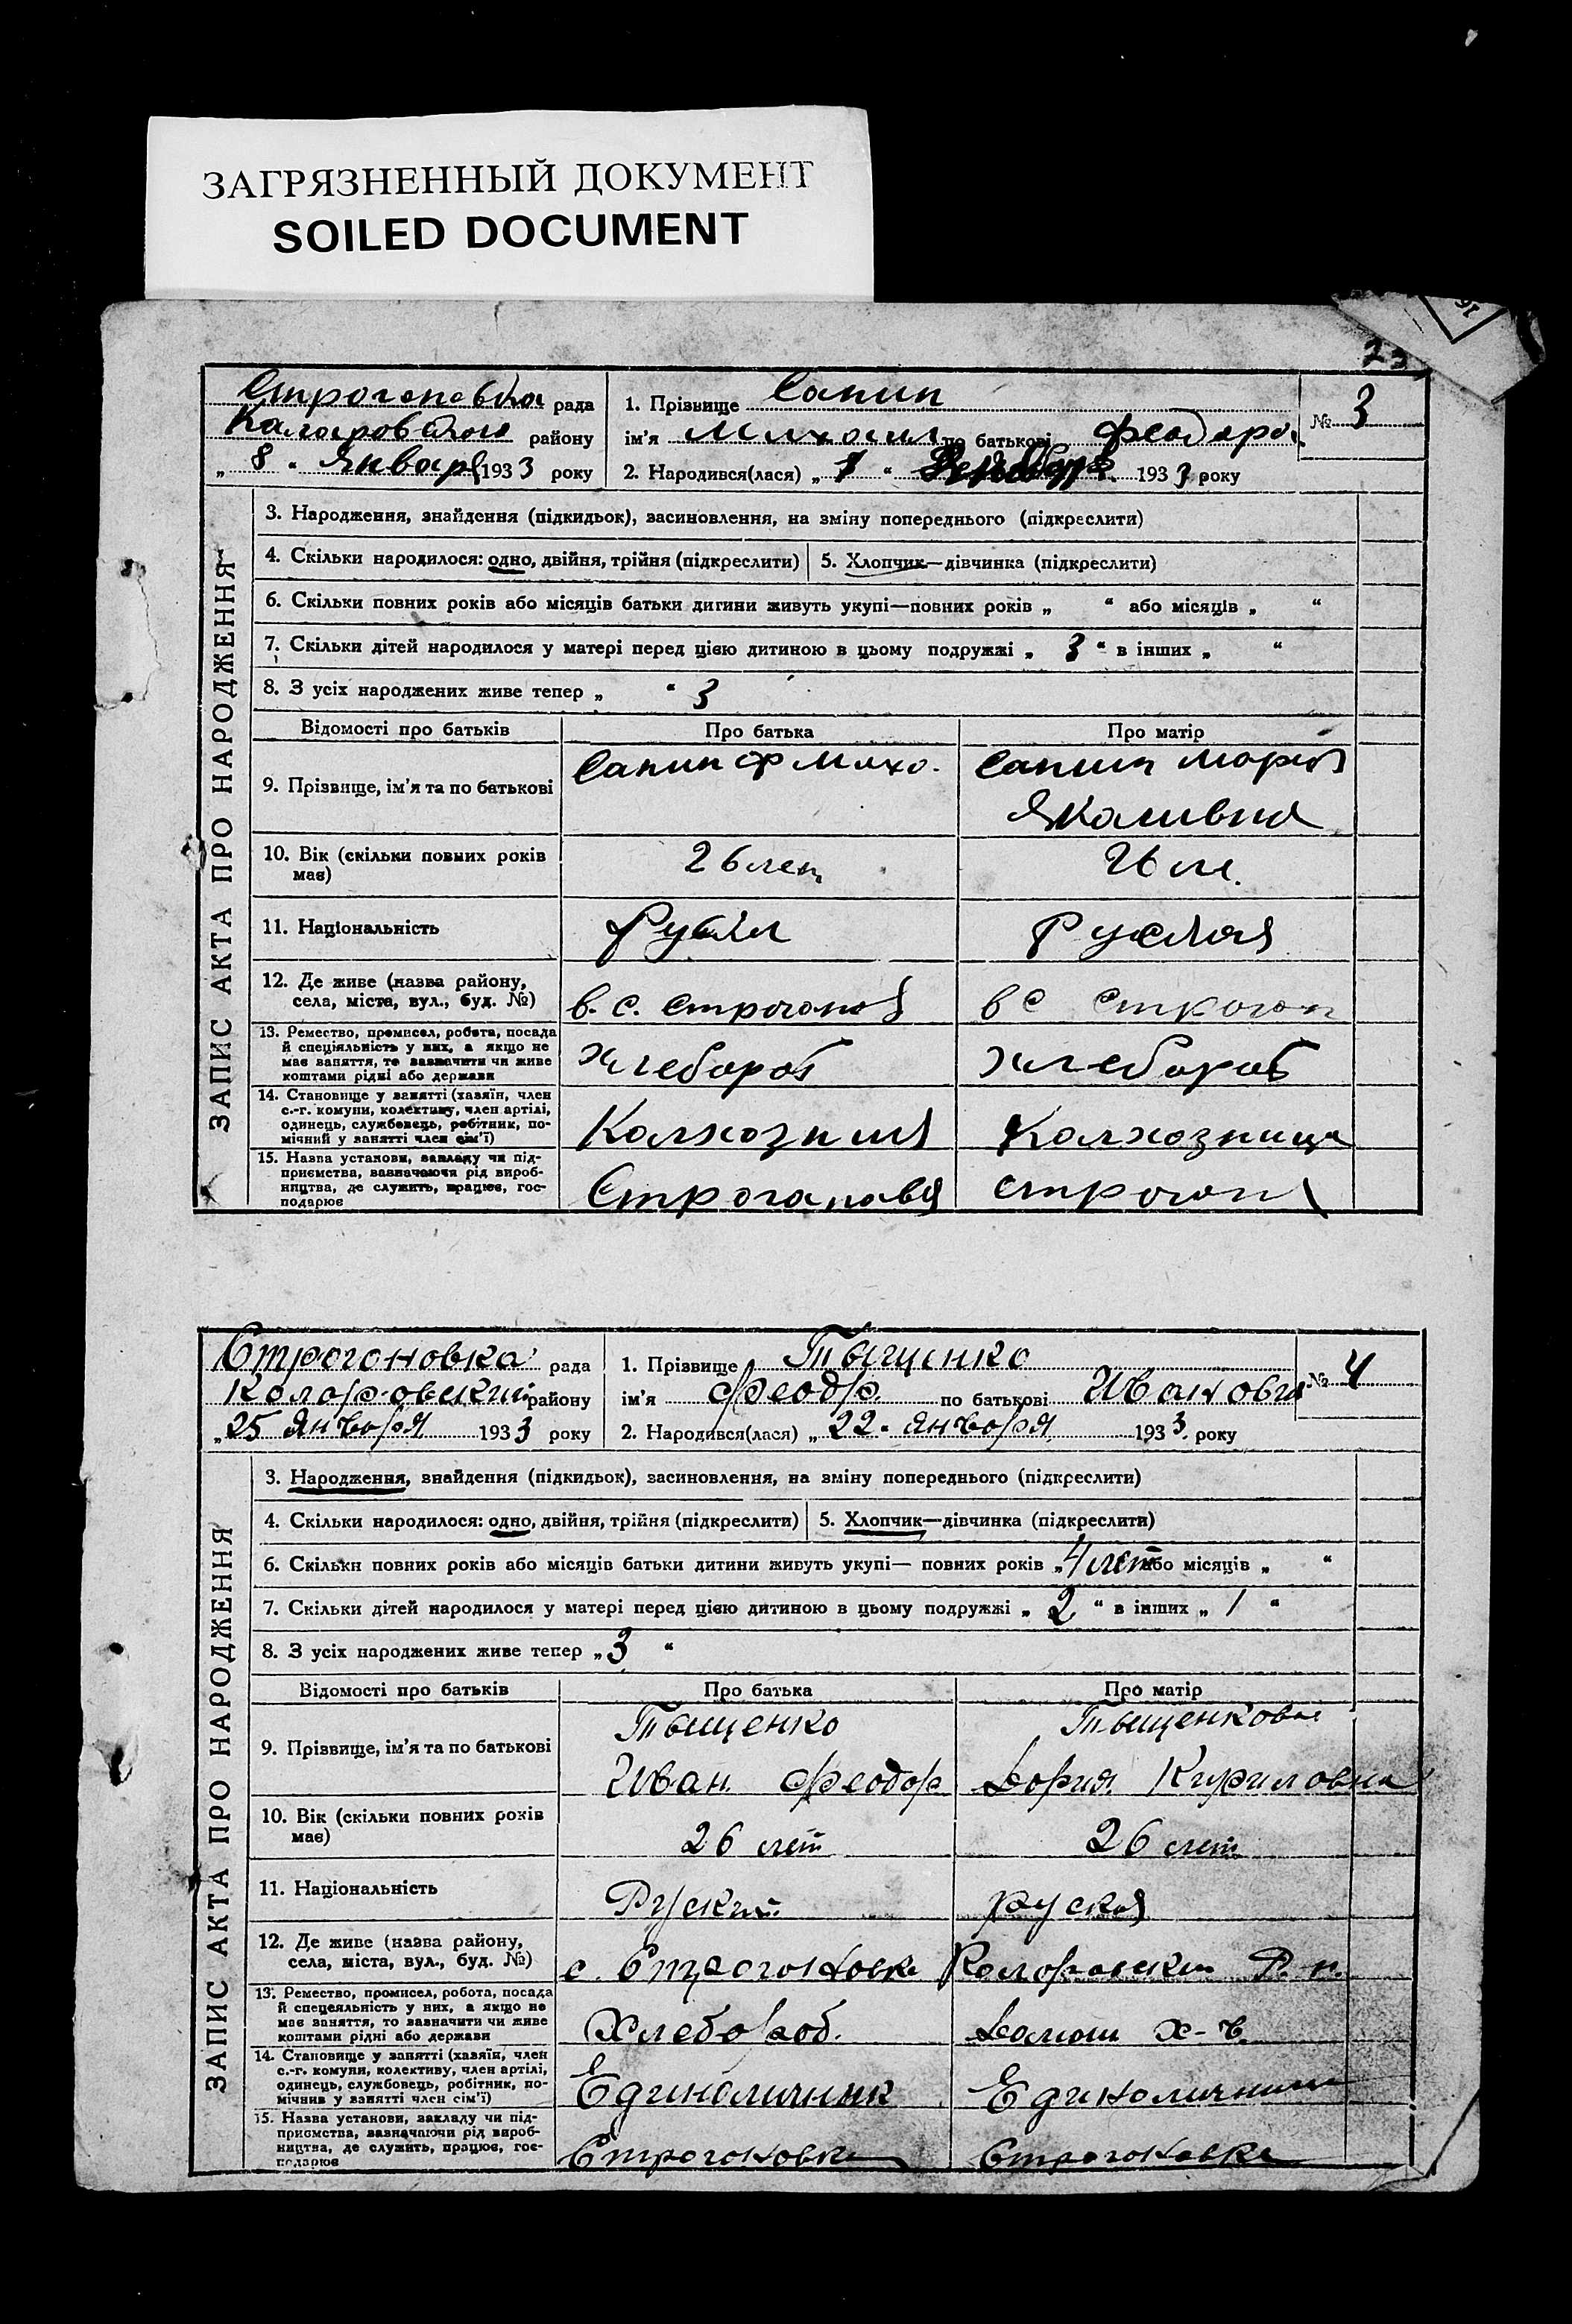 ЗАГРЯЗНЕННЫЙ ДОКУМЕНТ
SOILED DOCUMENT
23
рада
району
„ 8 “ Января 1933 року
1. Прізвище Сапин
ім'я Михаил по батькові Феодоро
2. Народився(лася) „ “ 1933 року
№ 3
ЗАПИС АКТА ПРО НАРОДЖЕННЯ
3. Народження, знайдення (підкидьок), засиновлення, на зміну попереднього (підкреслити)
4. Скільки народилося: одно, двійня, трійня (підкреслити)
5. Хлопчик—дівчинка (підкреслити)
6. Скільки повних років або місяців батьки дитини живуть укупі—повних років „ “ або місяців „ “
7. Скільки дітей народилося у матері перед цією дитиною в цьому подружжі „ 3 “ в інших „ “
8. З усіх народжених живе тепер „ “ 3
Відомості про батьків
Про батька
Про матір
9. Прізвище, ім'я та по батькові
Сапин Ф Миха.
Сапин Мария
Якаливна
10. Вік (скільки повних років
має)
26 лет
26 ле.
11. Національність
Руская
12. Де живе (назва району,
села, міста, вул., буд. №)
в. с. Строганов
в с Строган
13. Ремество, промисел, робота, посада
й спеціяльність у них, а якщо не
має заняття, то зазначити чи живе
коштами рідні або держави
Хлебороб
Хлебороб
14. Становище у занятті (хазяїн, член
с.-г. комуни, колективу, член артілі,
одинець, службовець, робітник, по-
мічний у занятті член сім'ї)
Колхозник
Колхозница
15. Назва установи, закладу чи під-
приємства, зазначаючи рід вироб-
ництва, де служить, працює, гос-
подарює
Строганавк
Строган
Строгоновка рада
Коларовский району
„ 25 Января 1933 року
1. Прізвище Тыщенко
ім'я Феодр. по батькові Иванович
2. Народився(лася) „ 22 “ Января 1933 року
№ 4
ЗАПИС АКТА ПРО НАРОДЖЕННЯ
3. Народження, знайдення (підкидьок), засиновлення, на зміну попереднього (підкреслити)
4. Скільки народилося: одно, двійня, трійня (підкреслити)
5. Хлопчик—дівчинка (підкреслити)
6. Скільки повних років або місяців батьки дитини живуть укупі— повних років „ 4 лет або місяців „ “
7. Скільки дітей народилося у матері перед цією дитиною в цьому подружжі „ 2 “ в інших „ 1 “
8. З усіх народжених живе тепер „ 3 “
Відомості про батьків
Про батька
Про матір
9. Прізвище, ім'я та по батькові
Тыщенко
Иван Феодор
Тыщенкова
Дория Кириловна
10. Вік (скільки повних років
має)
26 лет
26 лет
11. Національність
Руский
руская
12. Де живе (назва району,
села, міста, вул., буд. №)
с. Строгоновка
Коларовский Р. н.
13. Ремество, промисел, робота, посада
й спецеяльність у них, а якщо не
має заняття, то зазначити чи живе
коштами рідні або держави
Хлебороб.
Домаш х-в.
14. Становище у занятті (хазяїн, член
с.-г. комуни, колективу, член артілі,
одинець, службовець, робітник, по-
мічник у занятті член сім'ї)
Единоличник
Единолични
15. Назва установи, закладу чи під-
приємства, зазначаючи рід вироб-
ництва, де служить, працює, гос-
подарює
Строгоновка
Строгоновка